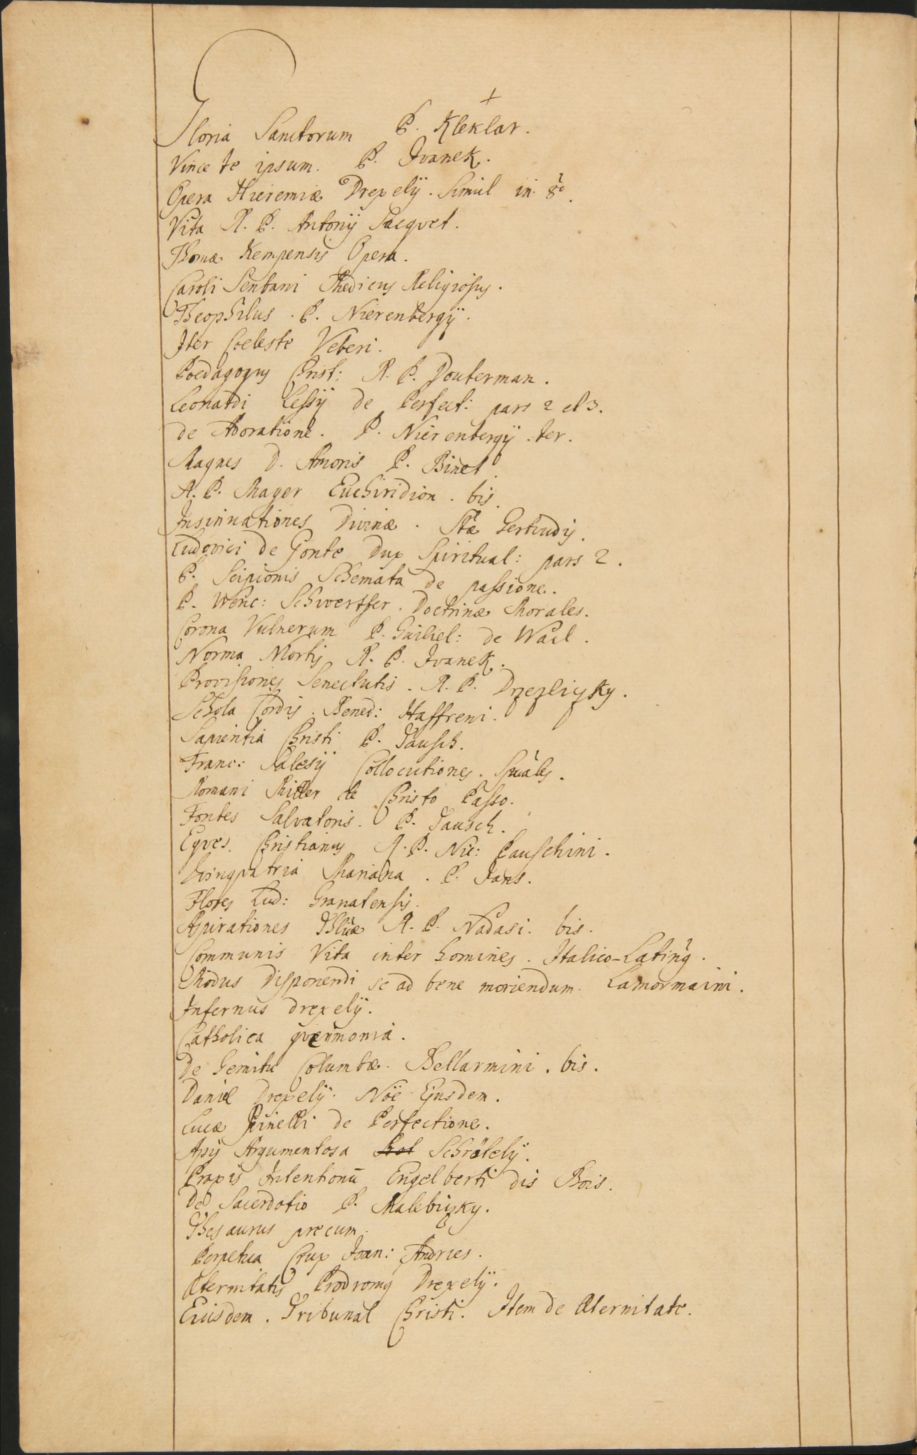 Gloria Sanctorum P. Kleklar. +
Vince te ipsum. P. Ivanek.
Opera Hieremiæ Drexelij. Simul in 8º.
Vita R. P. Antonij Jacquet.
Thomæ Kempensis Opera.
Caroli Religiosus.
Theophilus. P. Nierenbergij.
Iter Coeleste Veberi.
Poedagogus Christ: R. P. Douterman.
Leonardi Lessij de Perfect: pars 2 et 3.
de Adoratione. P. Nierenbergij. ter.
Magnes D. Amoris P. Binet
R. P. Mager Enchiridion. bis.
Insinuationes Divinæ. Stæ Gertrudis.
Ludovici de Ponte Dux Spiritual: pars 2.
P. Scipionis Schemata de passione.
P. Wenc: Schwertfer. Doctrinæ Morales.
Corona Vulnerum P. Guiliel: de Wael.
Norma Mortis R. P. Ivanek.
Provisiones Senectutis. R. P.
Schola Cordis. Bened: Haffteni.
Sapientia Christi P. Tausch.
Franc: Salesij Collocutiones. Spuales.
Romani Miller de Christo Passo.
Fontes Salvatoris. P. Tausch.
Eques Christianus R. P. Nic: Pauschini.
Mariana. P. Jans.
Flores Lud: Granatensis.
Aspirationes R. P. Nadasi. bis.
Communis Vita inter homines. Italico-Latinus.
Modus Disponendi se ad bene moriendum. Lamormaini.
Infernus Drexelij.
Catholica quærimonia.
De Gemitu Columbæ. Bellarmini. bis.
Daniel Drexelij. Nöe Ejusdem.
Lucæ Pinelli de Perfectione.
Argumentosa
Praxis Intentionū Engelberti des Bois.
De Sacerdotio P.
Thesaurus precum.
Perpetua Crux Joan: Andries.
Æternitatis Prodromus Drexelij.
Eiusdem. Tribunal Christi. Item de Æternitate.